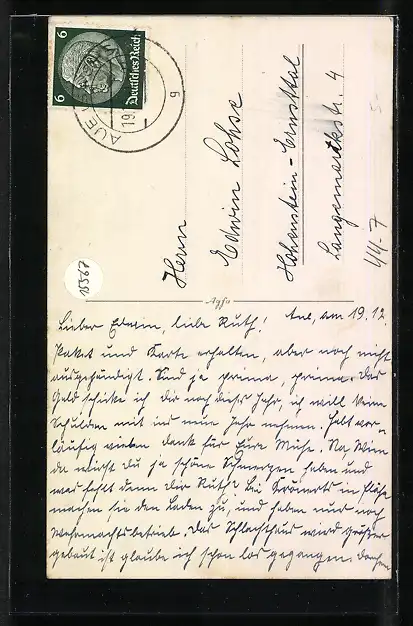 6 6
Deutsches Reich
AUE
19.
g
Herrn
Edwin Lohse
Hohenstein-Ernstthal
Langemarkstr. 4
44-7
15367
Agfa
Lieber Edwin, liebe Ruth! Aue, am 19.12.
Paket und Karte erhalten, aber noch nicht
ausgehändigt. Sind ja prima, prima. Das
Geld schicke ich dir noch dieses Jahr, ich will keine
Schulden mit ins neue Jahr nehmen. Habt vor-
läufig vielen Dank für Eure Mühe. Na, Wein
da wirst du ja schöne Schmerzen haben und
was fehlt denn dir Ruth? Bei in
machen sie den Laden zu, und haben nur noch
Wehrmachtsbetrieb. Das Schlachthaus wird größer
gebaut ist glaube ich schon los gegangen.